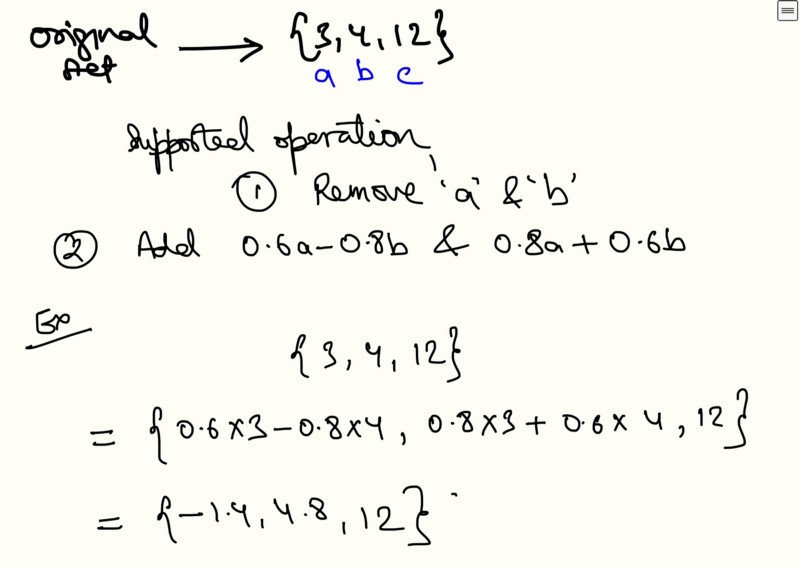 original
set → {3, 4, 12}
a b c
Supported operation,
① Remove 'a' & 'b'
② Add 0.6a-0.8b & 0.8a+0.6b
Ex
{3, 4, 12}
= {0.6×3-0.8×4, 0.8×3+0.6×4, 12}
= {-1.4, 4.8, 12}